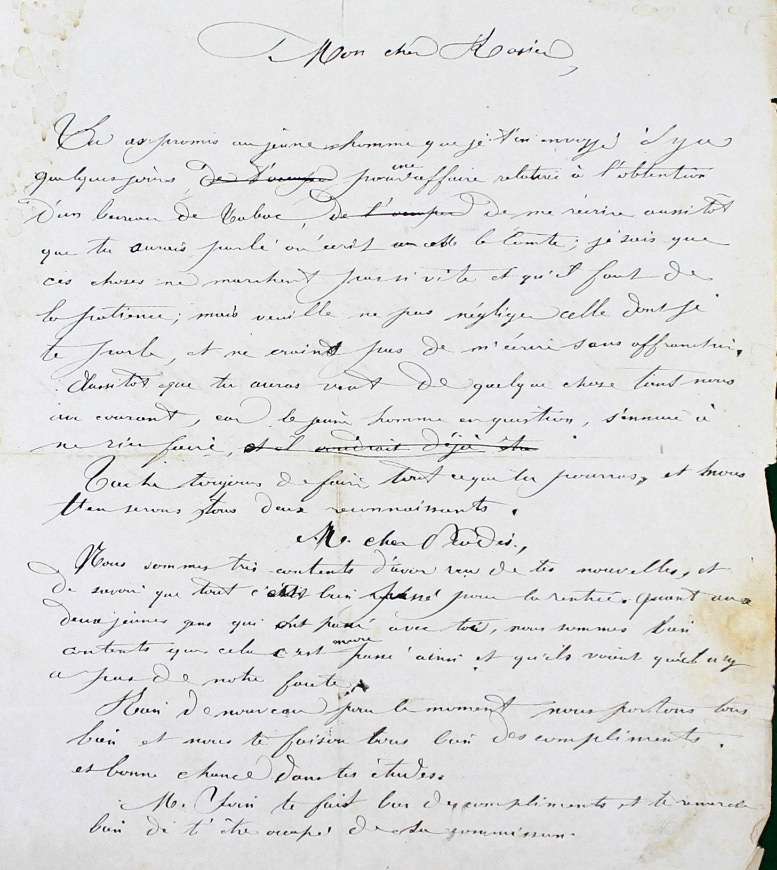 Mon cher
Tu as promis au jeune homme que je t'ai envoyé il y a
quelques jours de t'occuper pour une affaire relative à l'obtention
d'un bureau de Tabac, de t'occuper de me récrire aussitôt
que tu aurais parlé ou écrit le Comte; je sais que
ces choses ne marchent pas si vite et qu'il faut de
la patience; mais veuille ne pas négliger celle dont je
te parle, et ne crains pas de m'écrire sans affranchir.
Aussitôt que tu auras vent de quelque chose tiens nous
au courant, car le jeune homme en question, s'ennuie à
ne rien faire, et il voudrait déjà être
Tache toujours de faire tout ce que tu pourras, et nous
t'en serons tous deux reconnaissants.
M. cher
Nous sommes très contents d'avoir reçu de tes nouvelles, et
de savoir que tout c'est bien passé pour la rentrée. Quant aux
deux jeunes gens qui ont passé avec toi, nous sommes bien
contents que cela c'est encore passé ainsi et qu'ils voient qu'il n'y
a pas de notre faute.
Rien de nouveau pour le moment nous portons tous
bien et nous te faison tous bien des compliments.
et bonne chance dans tes études.
M. te fait bien des compliments et te remercie
bien de t'être occupé de sa commission.